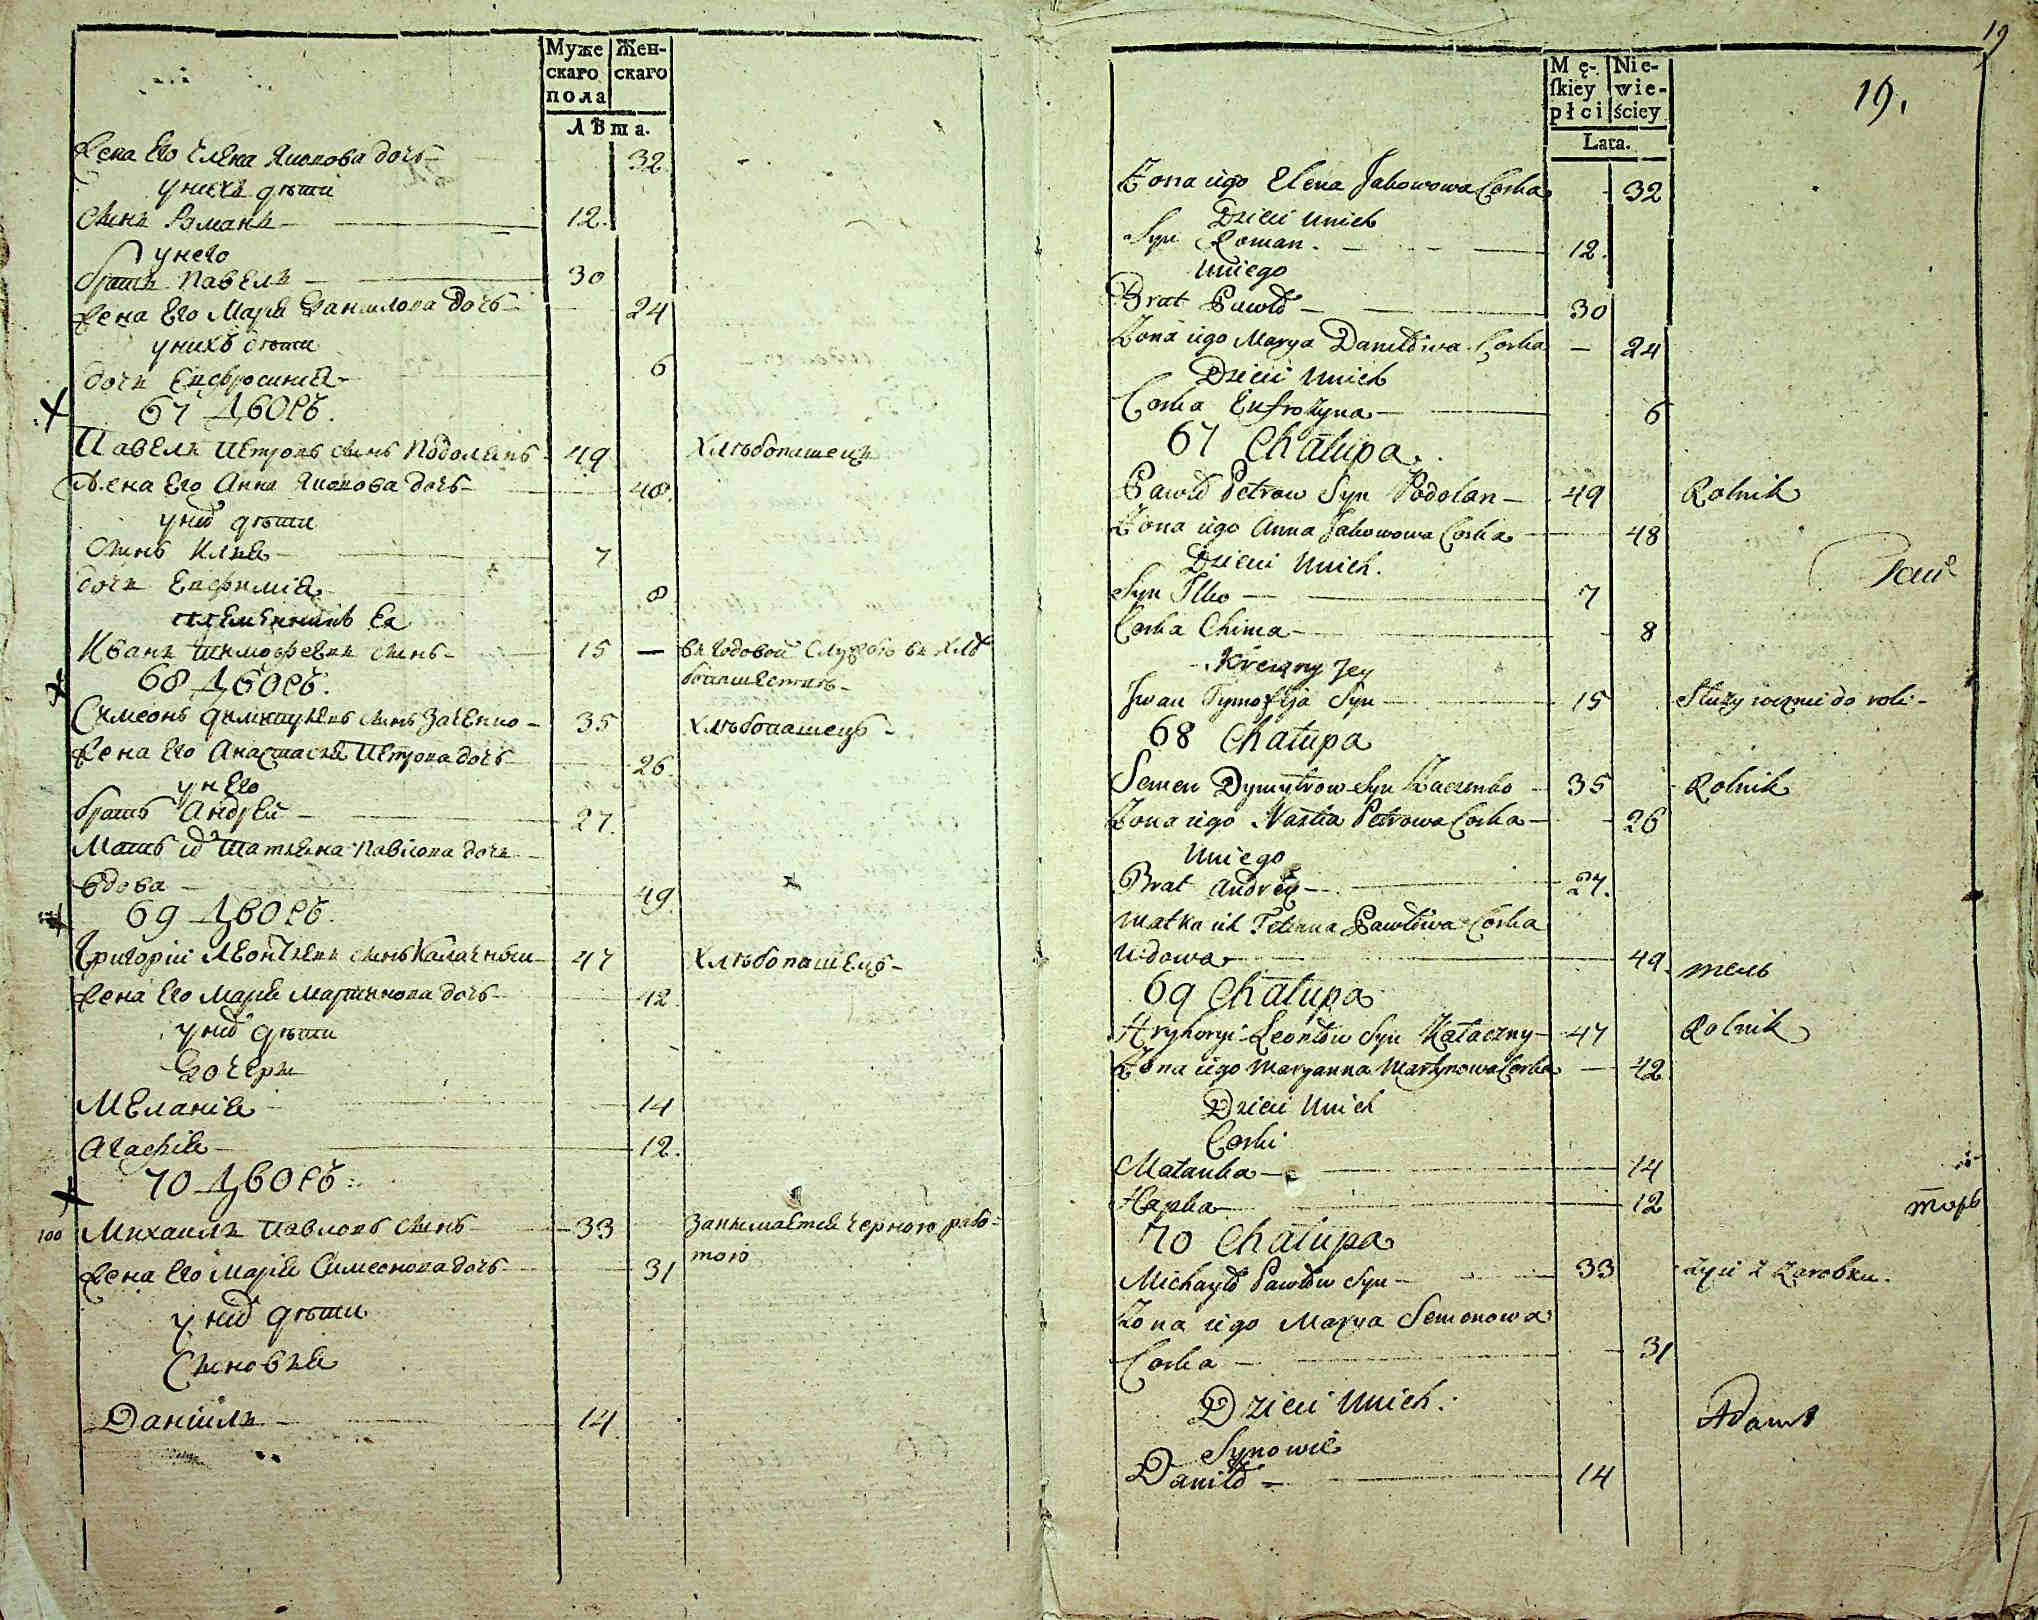 Муже Жен-
скаго скаго
пола
Лѣта.
Жена Его Елена Яковова дочь 32
у нихъ дѣти
сынъ Романъ 12.
у него
братъ Павелъ 30
жена Его Марія Данилова дочь 24
у нихъ дѣти
дочь Евфросинія 6
67 Дворъ.
Павелъ Петровъ сынъ Подолянъ 49 Хлѣбопашецъ
Жена Его Анна Яковова дочь 48.
у них дѣти
сынъ Илія 7
дочь Евфимія 8
племенникъ Ея
Иванъ Тимофеевъ сынъ 15 въ годовой службѣ въ хлѣ
бопашествѣ
68 Дворъ.
Симеонъ Димитріевъ сынъ Заченко 35 Хлѣбопашецъ
жена Его Анастасія Петрова дочь 26.
у него
братъ Андрей 27.
Мать их Татіяна Павлова дочь
вдова 49.
69 Дворъ.
Григорій Леонтіевъ сынъ Калачный 47 Хлѣбопашецъ
жена Его Марія Мартинова дочь 42.
у них дѣти
дочери
Меланія 14
Агафія 12.
70 Дворъ.
100 Михаилъ Павловъ сынъ 33 Занимается черною рабо=
тою
жена Его Марія Симеонова дочь 31
у них дѣти
Сыновья
Даніилъ 14.
19
19.
Mę- Nie-
ſkiey wie-
płci ściey
Lata.
Zona iego Elena Jakowowa Corka 32
Dzieci Unich
Syn Roman. 12.
Uniego
Brat Pawło 30
Zona iego Marya Daniłowa Corka 24
Dzieci Unich
Corka Eufrozyna 6
67 Chałupa.
Pawło Petrow Syn Podolan 49 Rolnik
Zona iego Anna Jakowowa Corka 48
Dzieci Unich.
Syn Ilko 7
Corka Chima 8
Krewny Jey
Jwan Tymofija Syn 15 Służy roczni do roli
68 Chałupa
Semen Dymytrow Syn Zaczenko 35 Rolnik
Zona iego Nastia Petrowa Corka 26
Uniego
Brat Andrey 27.
Matka ich Tetiana Pawłowa Corka
Wdowa 49.
тель
69 Chałupa
Hryhoryi Leontow Syn Kałaczny 47 Rolnik
Zona iego Maryanna Martynowa Corka 42
Dzieci Unich
Corki
Małanka 14
Hapka 12
торъ
70 Chałupa
Michayło Pawłow Syn 33 żyie z Zarobku.
Zona iego Marya Semenowa
Corka 31
Dzieci Unich.
Synowie
Adam
Daniło 14